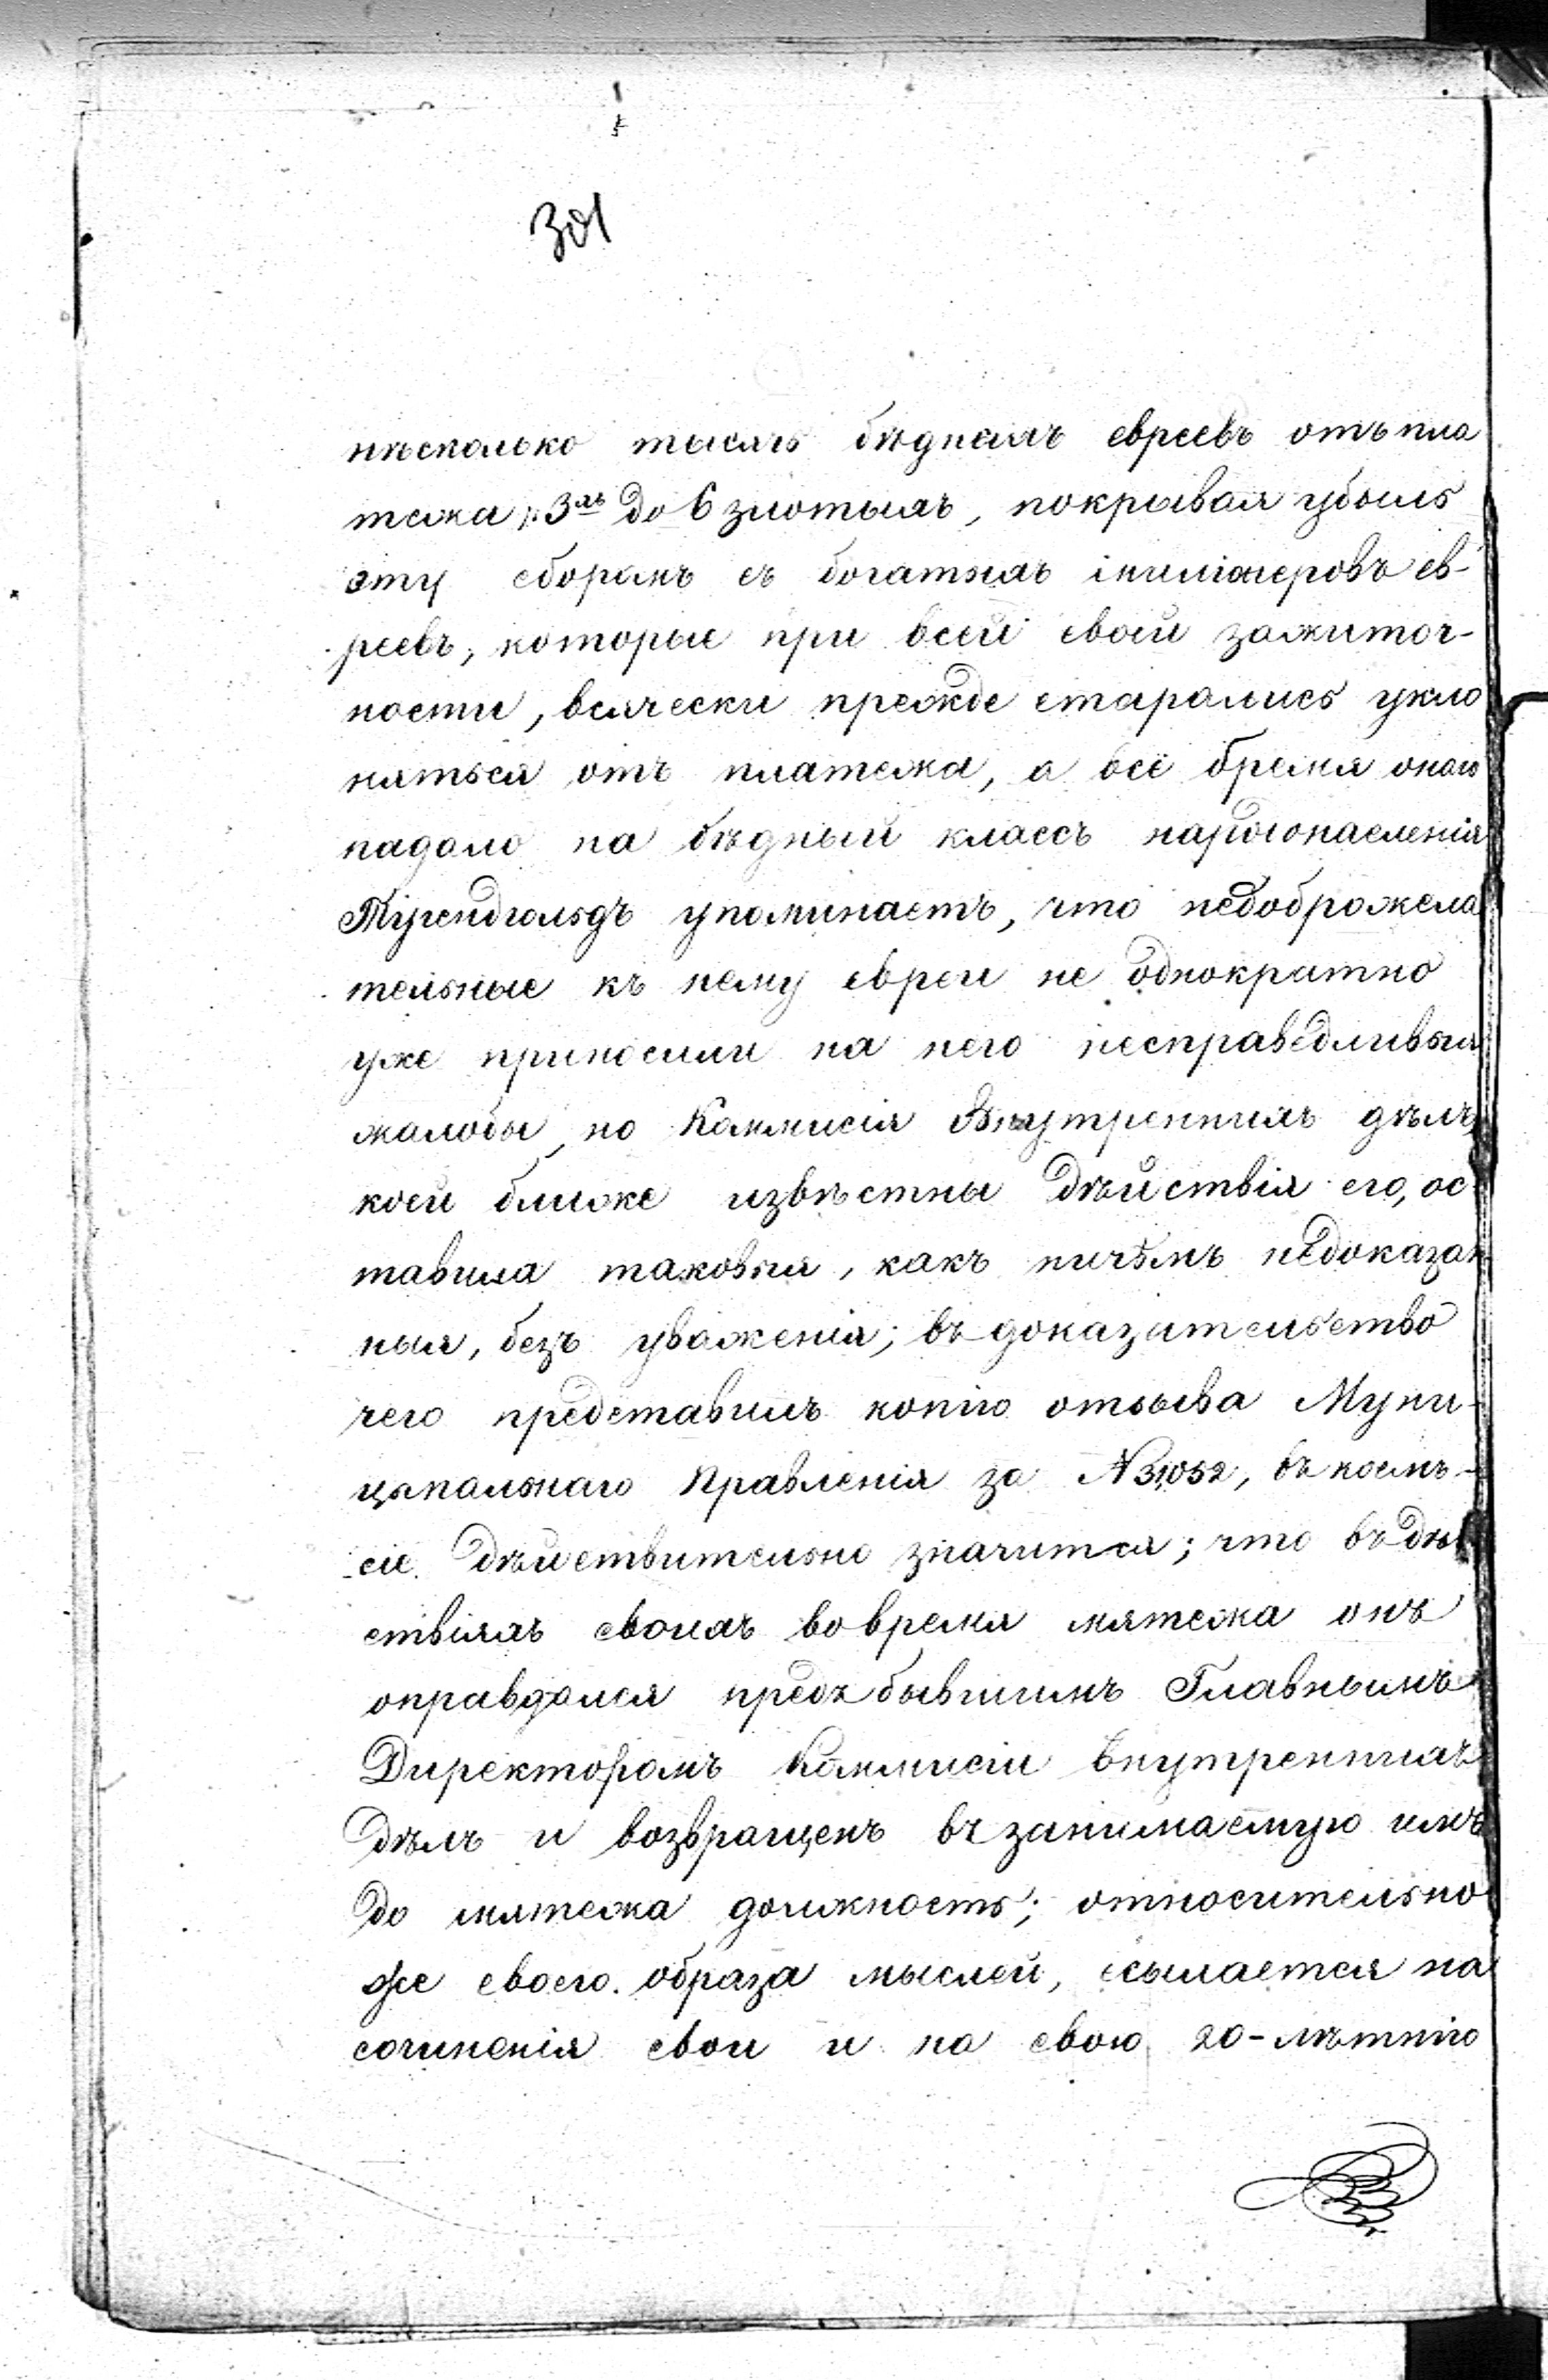 301
нѣсколько тысячь бѣдныхъ евреевъ отъ пла
тежа 3хъ до 6 злотыхъ, покрывая убыль
эту сборомъ съ богатыхъ ев-
реевъ, которые при всей своей зажиточ-
ности, всячески прежде старались укло
няться отъ платежа, а всё бремя онаго
падало на бѣдный классъ народонаселенія
Тугендгольдъ упоминаетъ, что недоброжела
тельные къ нему евреи не однократно
уже приносили на него несправедливыя
жалобы, но Коммисія Внутреннихъ дѣлъ,
коей ближе извѣстны дѣйствія его, ос
тавила таковыя, какъ ничѣмъ недоказан
ныя, безъ уваженія; въ доказательство
чего представилъ копію отзыва Муни-
ципальнаго Правленія за N 31052, въ коемъ-
сіе дѣйствительно значится; что въ дѣй
ствіяхъ своихъ во время мятежа онъ
оправдался предъ бывшимъ Главнымъ
Директоромъ Коммисіи Внутреннихъ
дѣлъ и возвращенъ въ занимаемую имъ
до мятежа должность; относительно
же своего образа мыслей, ссылается на
сочиненія свои и на свою 20-лѣтнюю